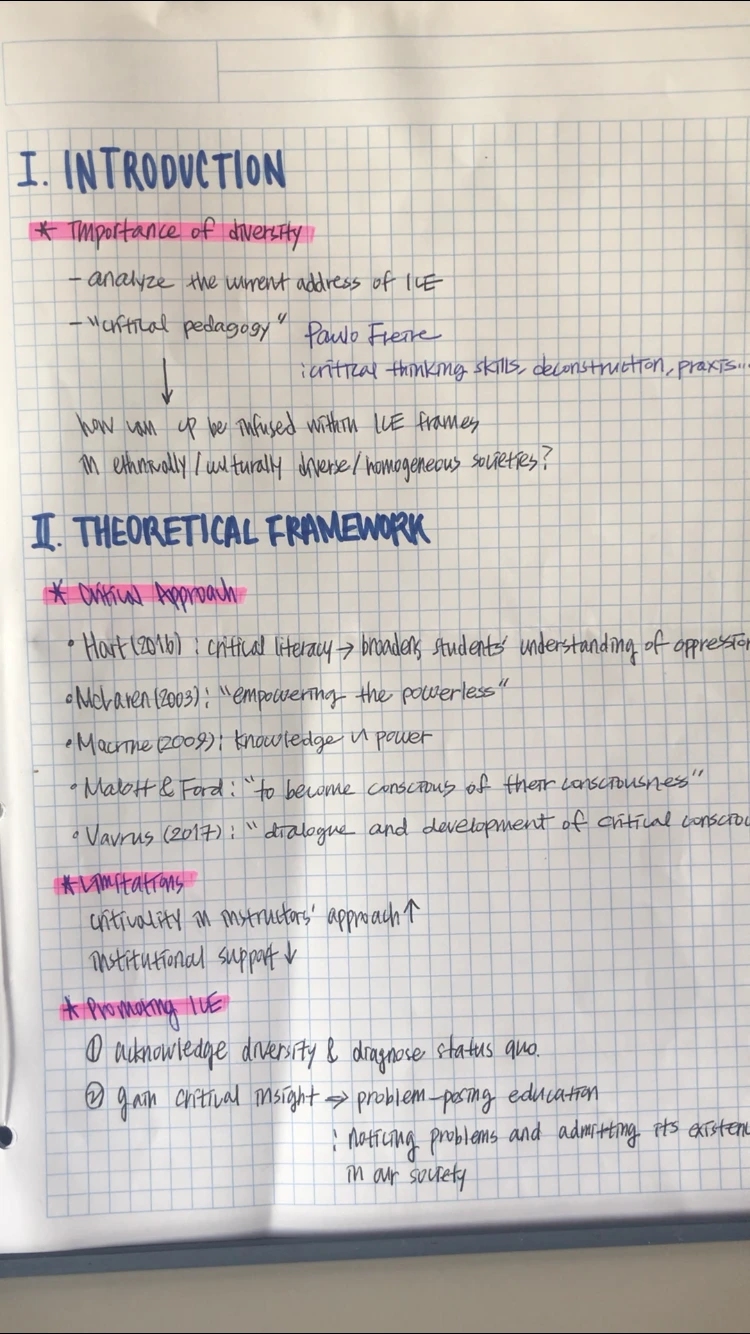 I. INTRODUCTION
* Importance of diversity
- analyze the current address of ICE
- "critical pedagogy" Paulo Freire
: critical thinking skills, deconstruction, praxis...
↓
how can cp be infused within ICE frames
in ethnically/culturally diverse/homogeneous societies?
II. THEORETICAL FRAMEWORK
* Critical Approach
• Hart (2016) : critical literacy → broadens students' understanding of oppression
• McLaren (2003) : "empowering the powerless"
• Macrine (2009) : knowledge power
• Malott & Ford : "to become conscious of their consciousness"
• Vavrus (2017) : "dialogue and development of critical
* Limitations
criticality in instructors' approach ↑
institutional support ↓
* Promoting ICE
① acknowledge diversity & diagnose status quo.
② gain critical insight ⇒ problem-posing education
: noticing problems and admitting its
in our society